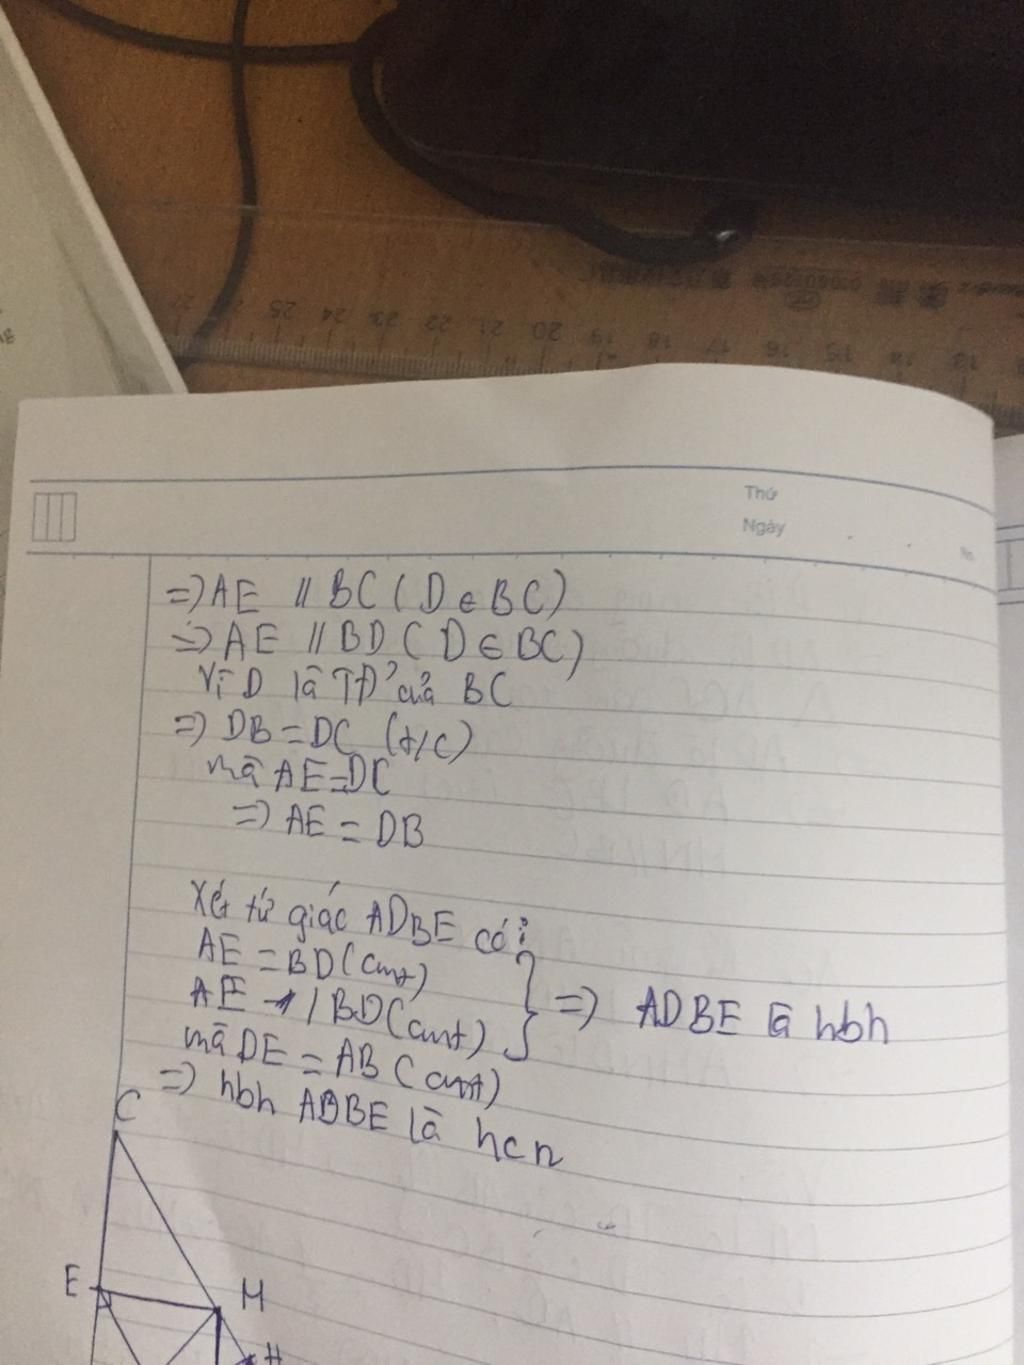 25 24 23 22 21 20 19 18 17 16 15 14 13
Thứ
Ngày
No.
=> AE // BC ( D ∈ BC)
=> AE // BD ( D ∈ BC)
Vì D là TĐ' của BC
=> DB = DC (t/c)
mà AE = DC
=> AE = DB
Xét tứ giác ADBE có:
AE = BD (cmt)
AE // BD (cmt)
=> ADBE là hbh
mà DE = AB (cmt)
=> hbh ADBE là hcn
C
E
M
H